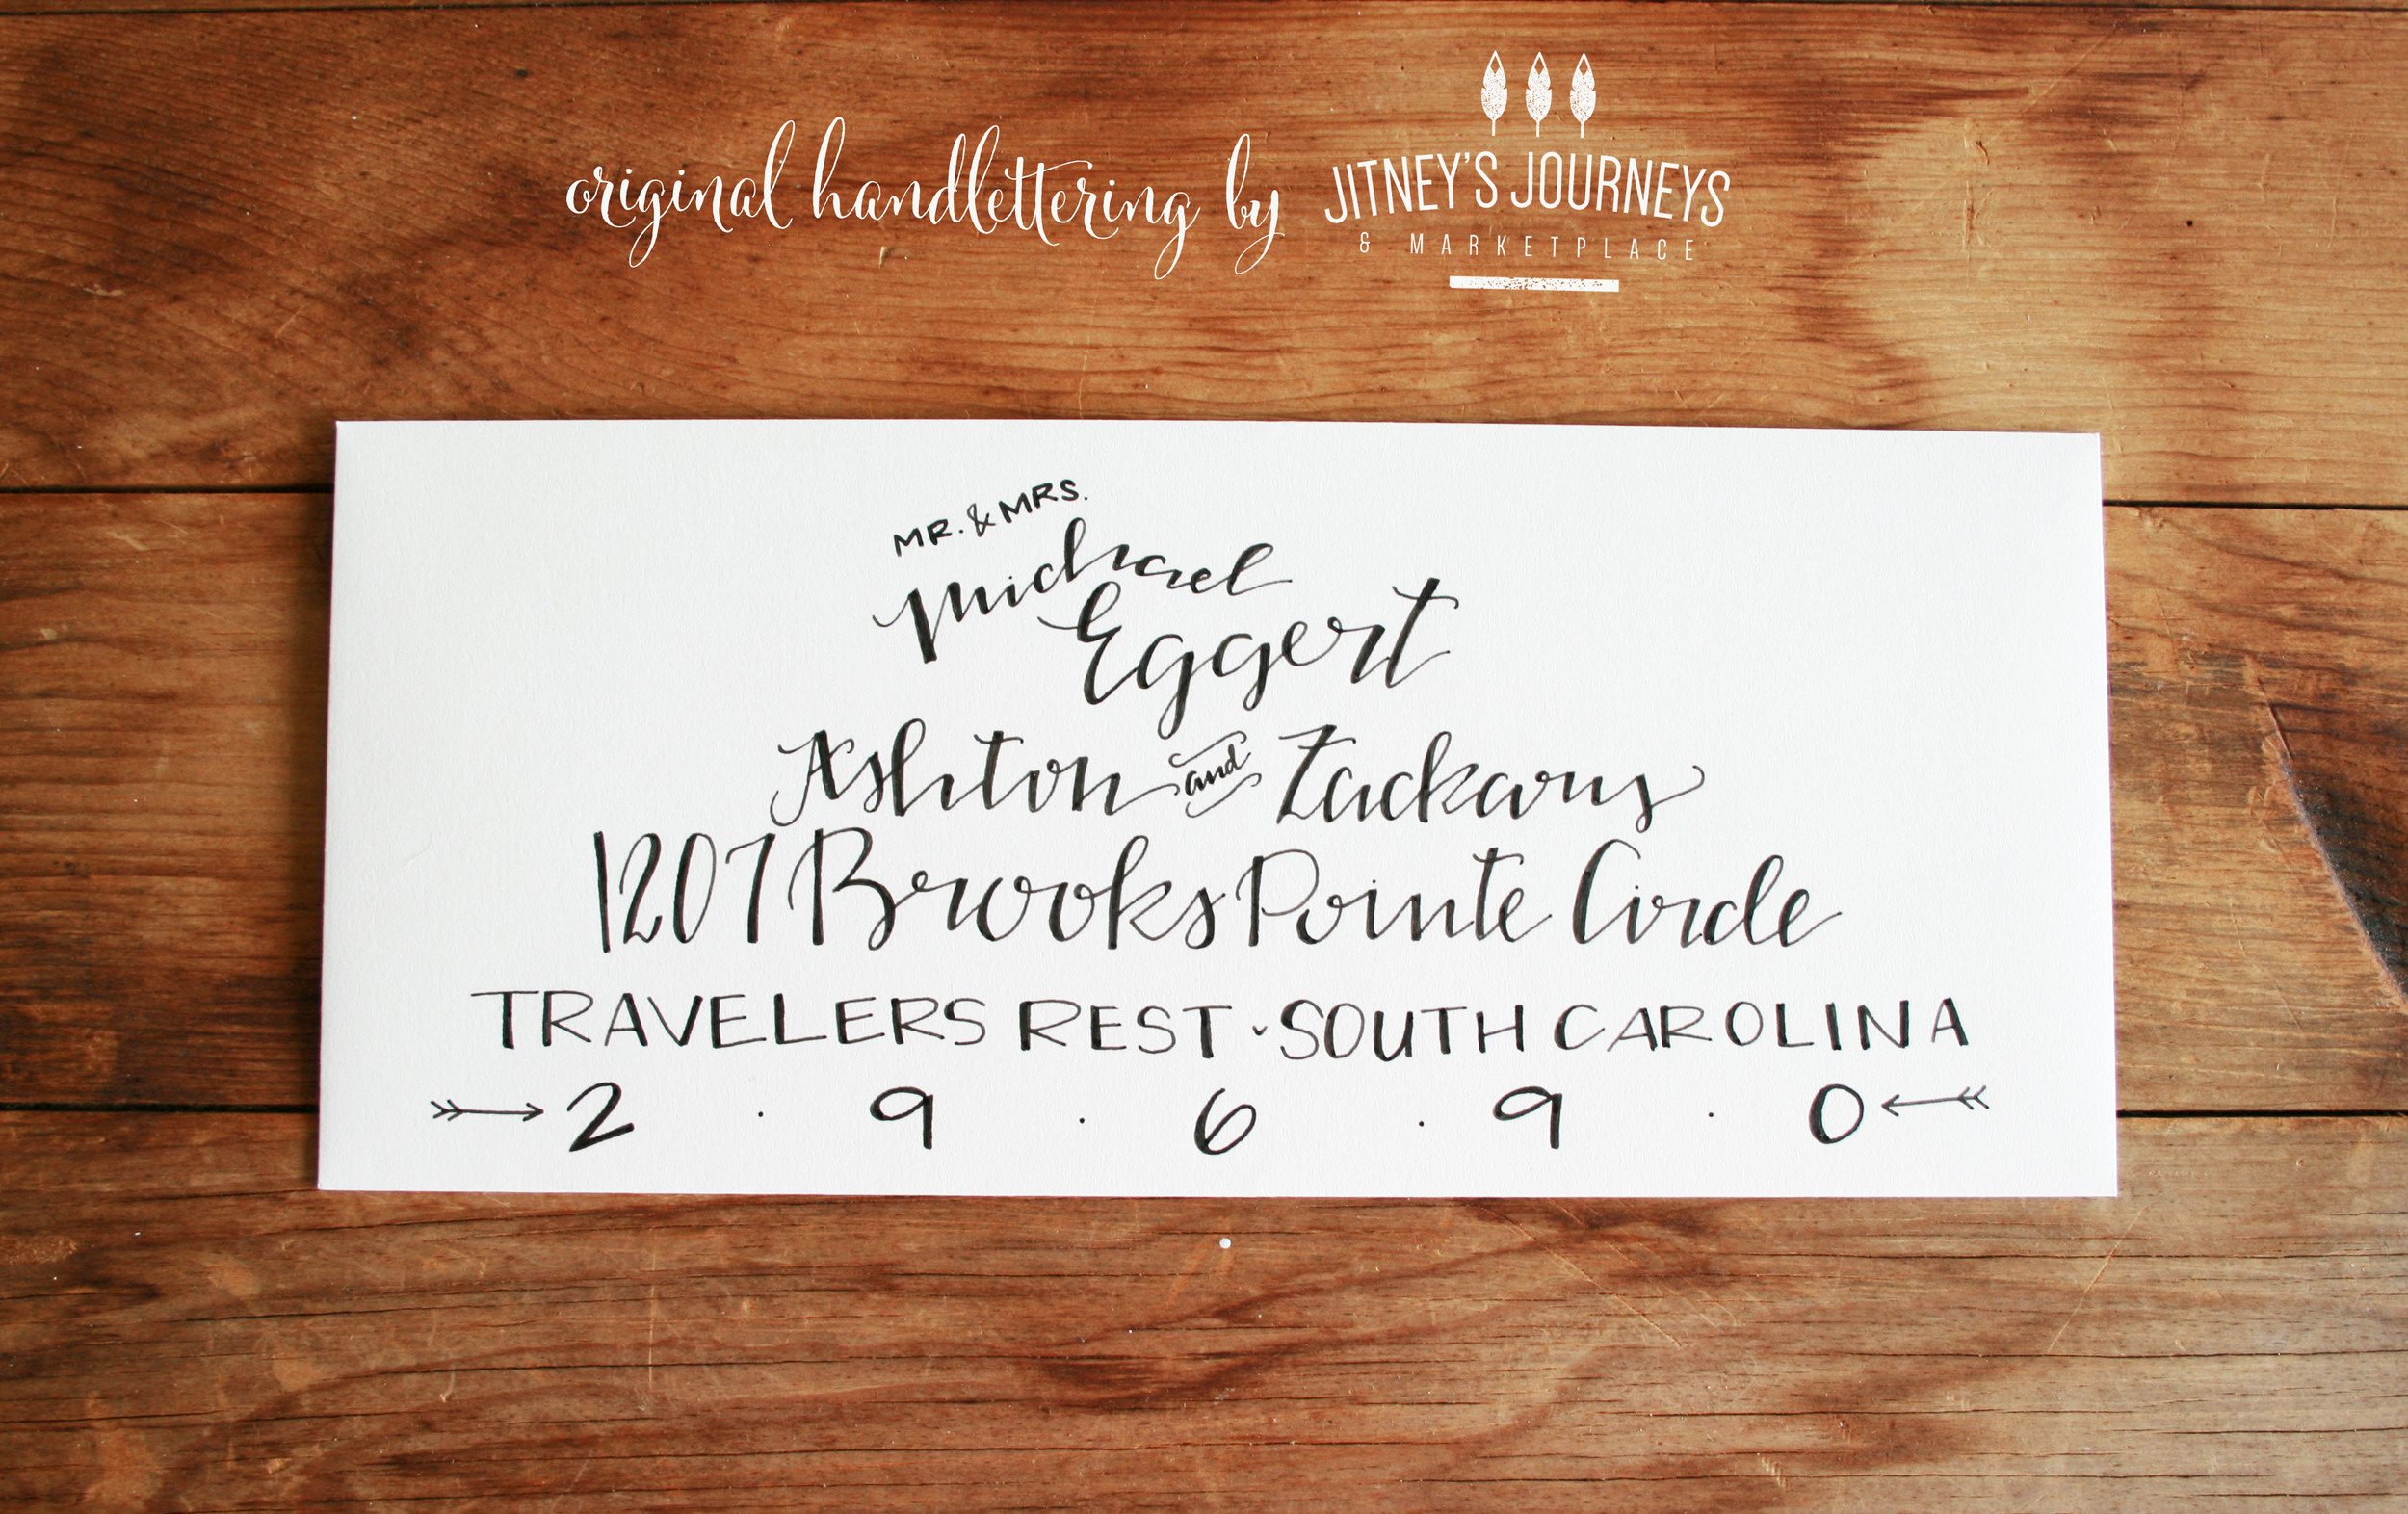 original handlettering by JITNEY'S JOURNEYS
& MARKETPLACE
MR. & MRS.
Michael
Eggert
Ashton and Zackary
1207 Brooks Pointe Circle
TRAVELERS REST · SOUTH CAROLINA
2 . 9 . 6 . 9 . 0